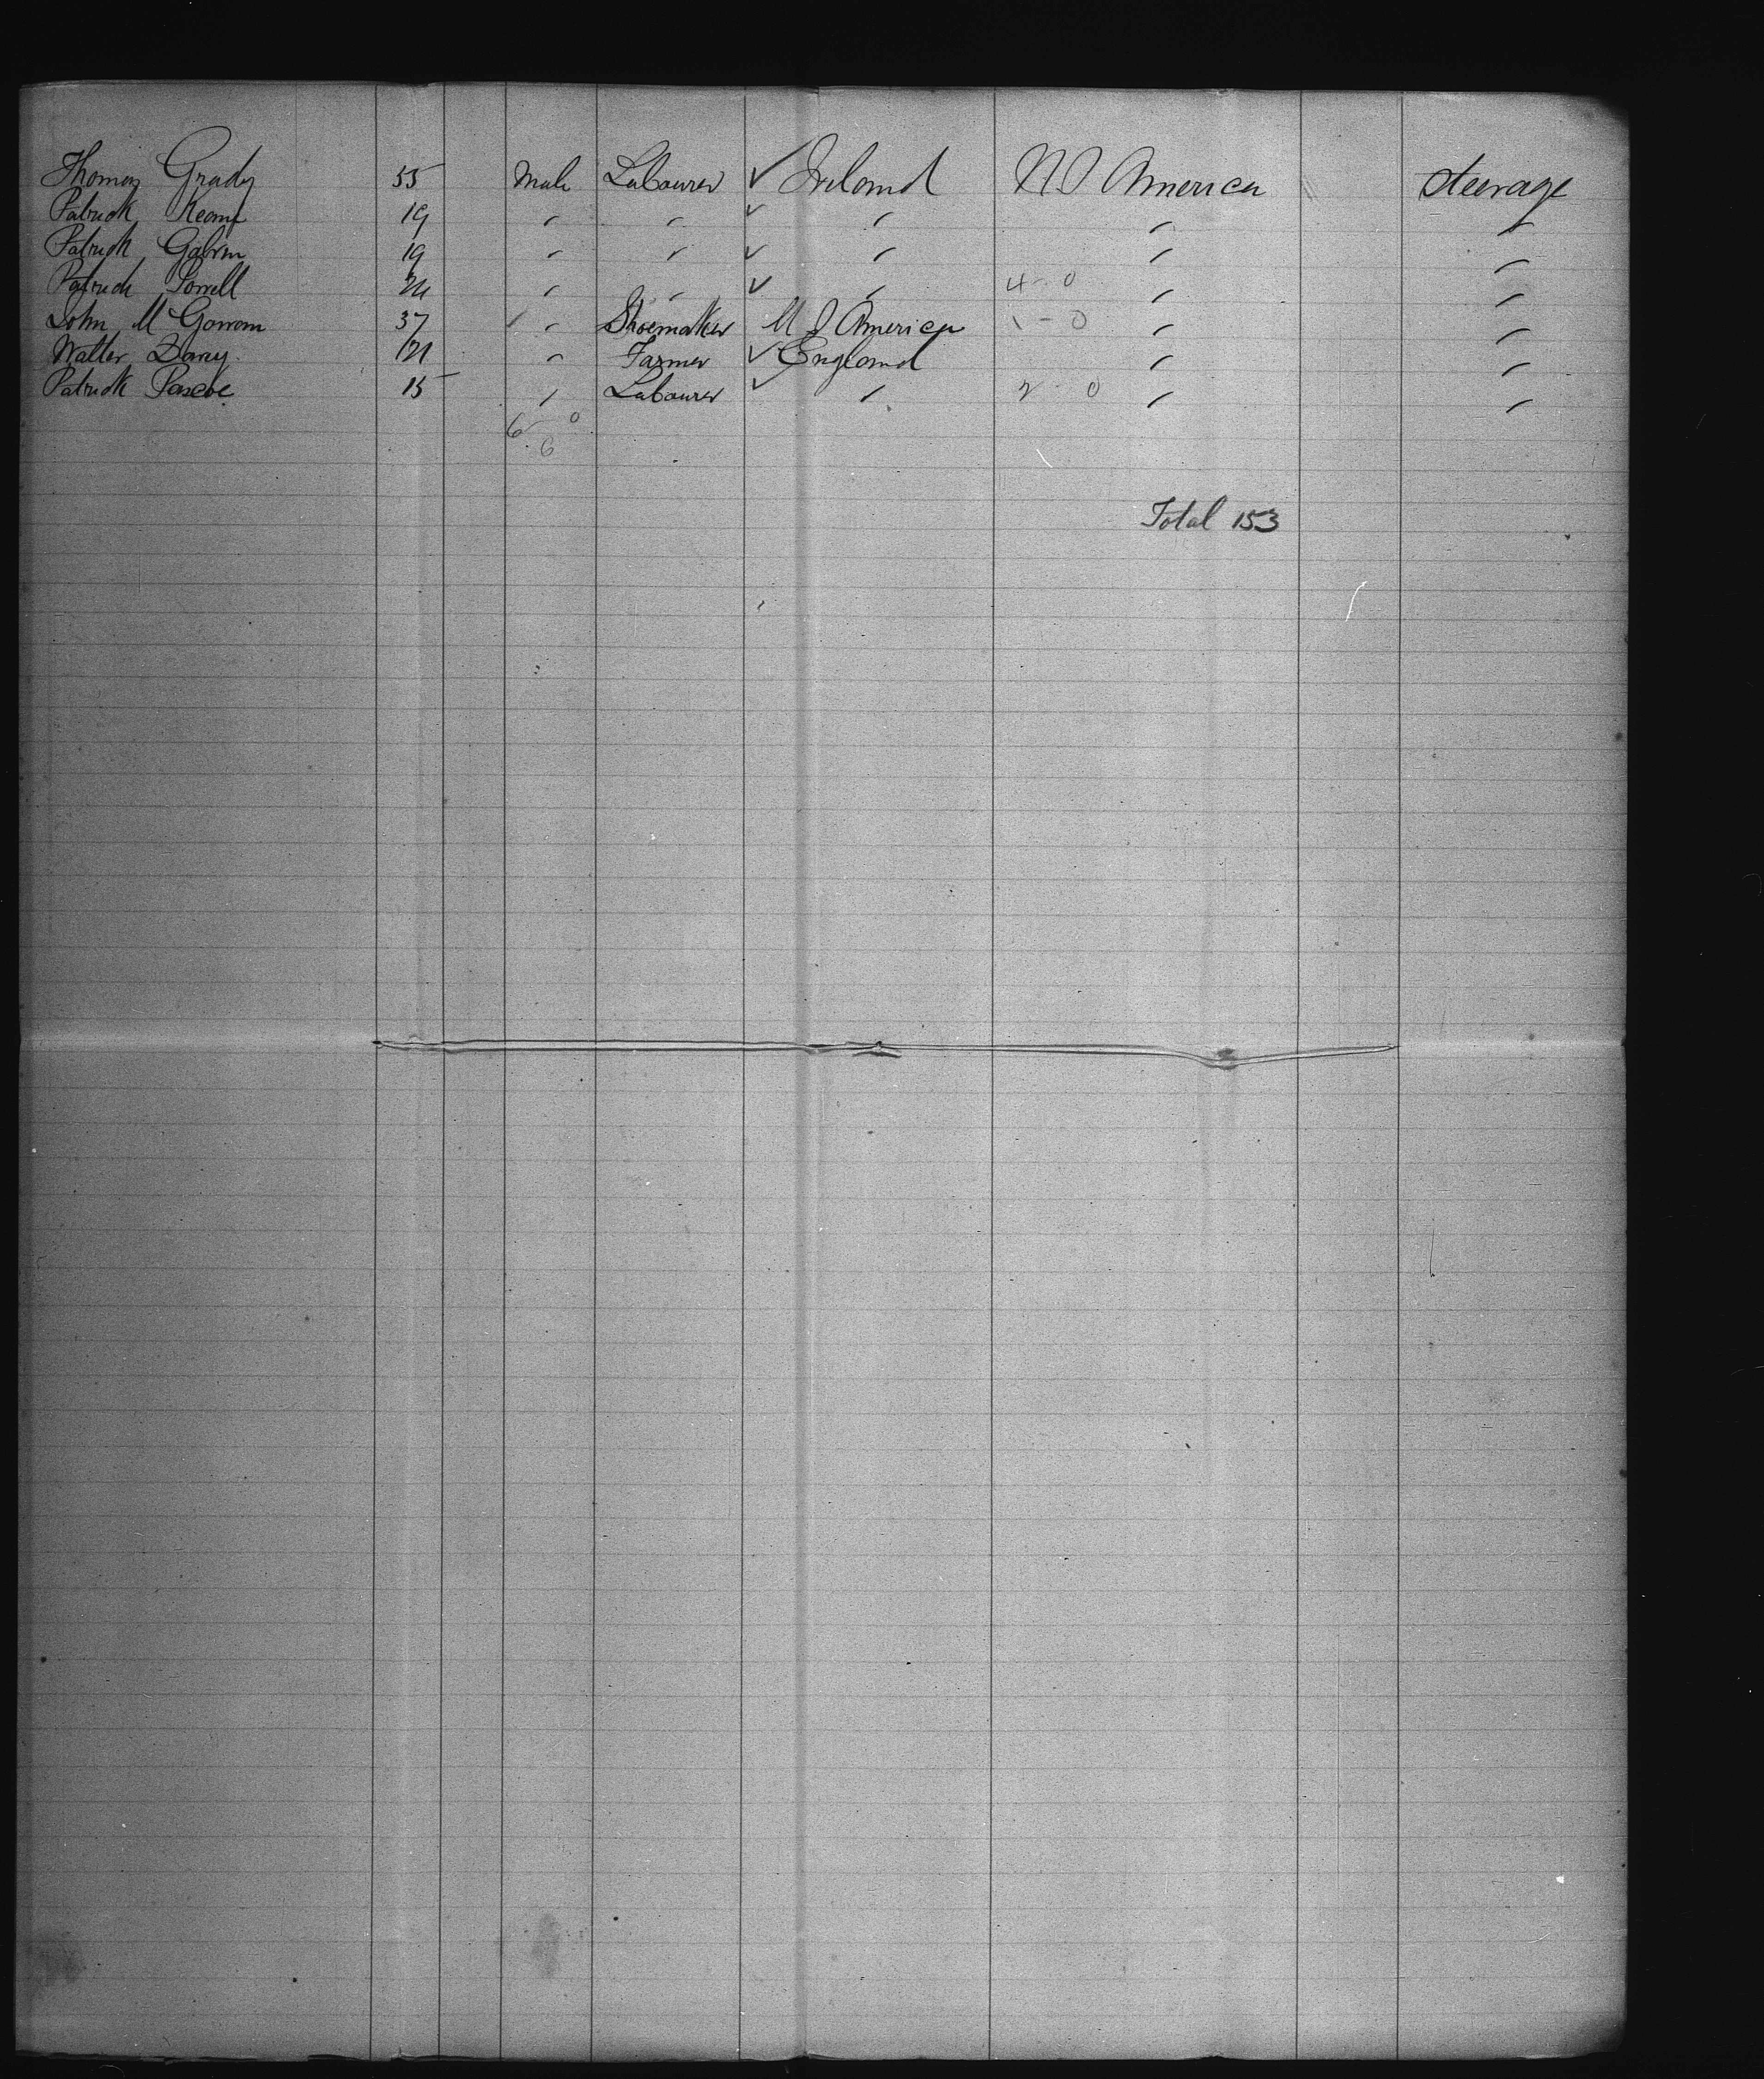 Thomas Grady 55 Male Labourer ✓ Ireland U S America Steerage
Patrick Keany 19 " " ✓ " " "
Patrick Galvin 19 " " ✓ " " "
Patrick " " ✓ " 4 - 0 " "
John M Gowan 37 " Shoemaker U S America 1 - 0 " "
Walter " Farmer ✓ England " "
Patrick Pascoe 15 " Labourer ✓ " 2 - 0 " "
6 0
6
Total 153